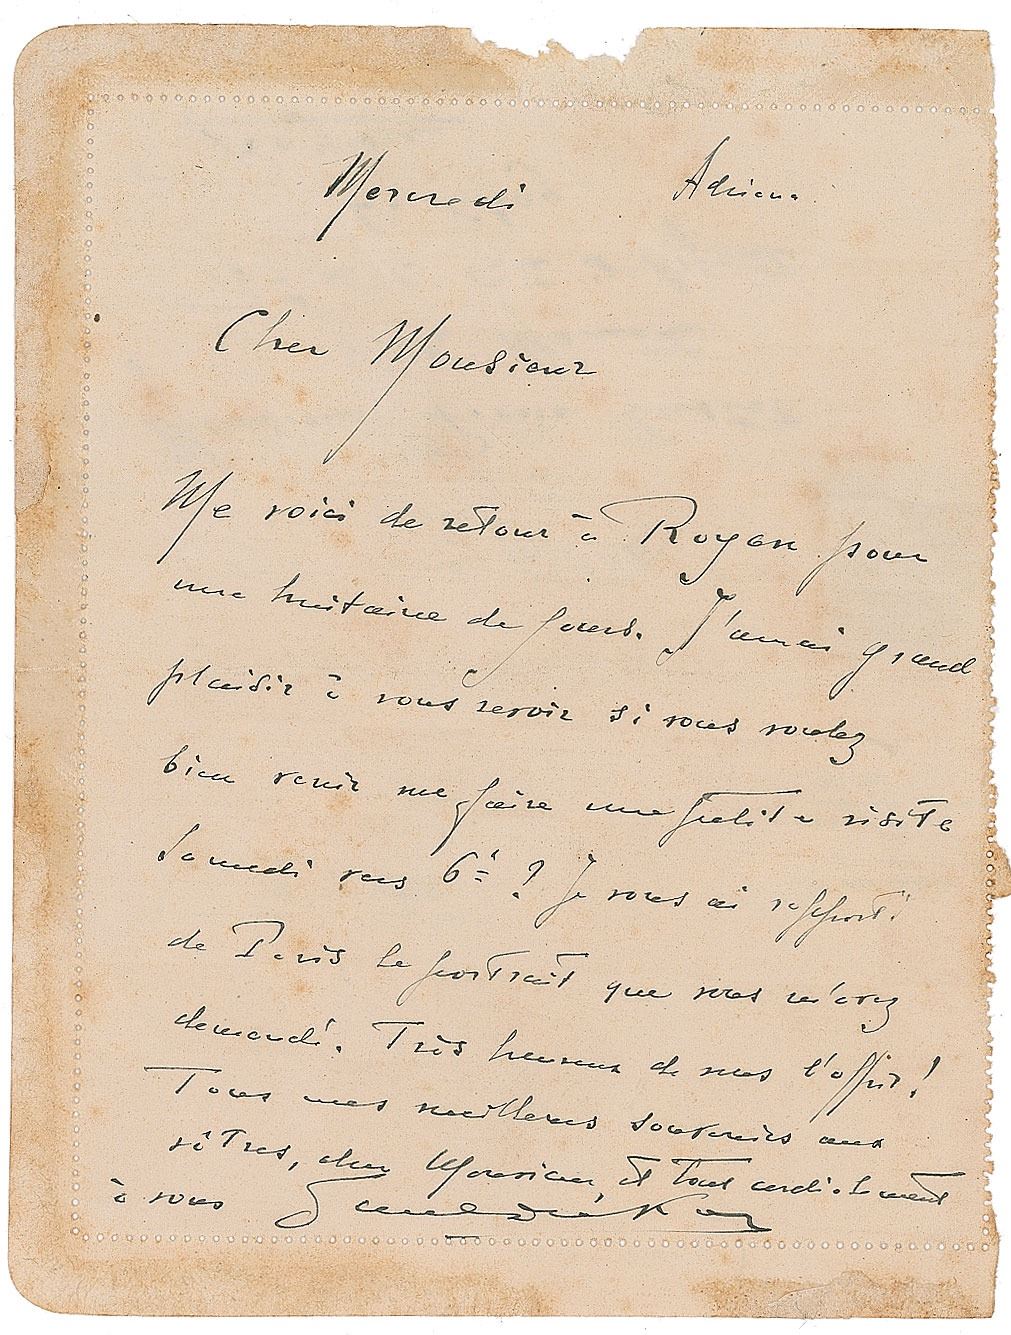 Mercredi Adriana
Cher Monsieur
Me voici de retour à Royan pour
une huitaine de jours. J'aurai grand
plaisir à vous revoir si vous voulez
bien venir me faire une petite visite
Samedi vers 6h ? Je vous ai rapporté
de Paris le portrait que vous m'avez
demandé. Très heureux de vous l'offrir !
Tous mes meilleurs souvenirs aux
vôtres, cher Monsieur, et tout cordialement
à vous